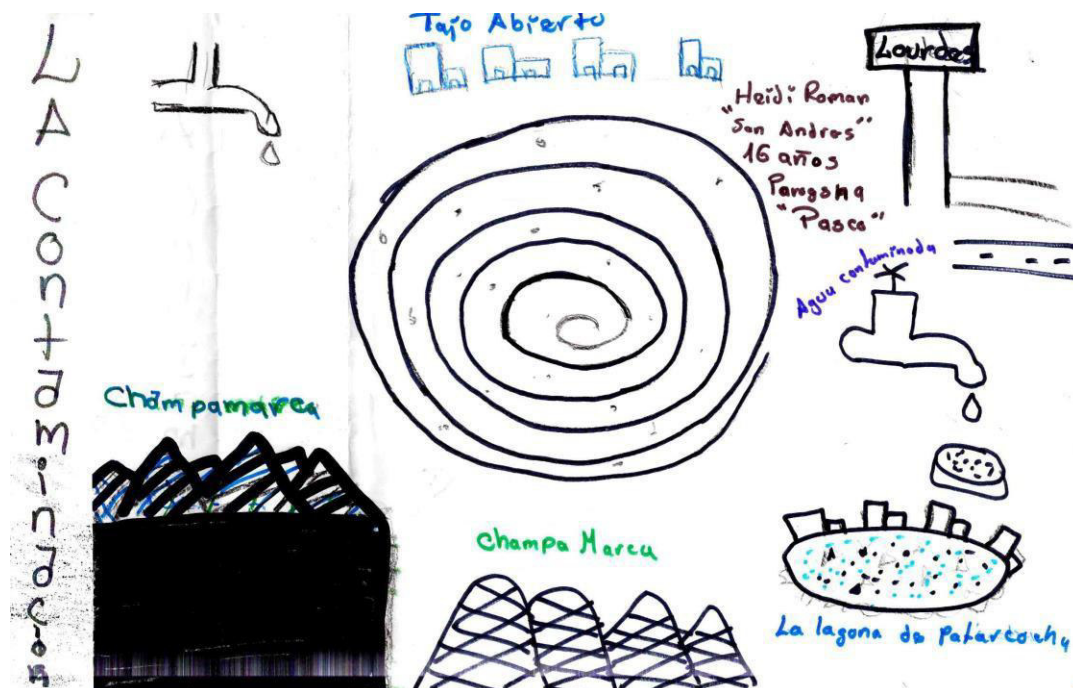 LA Contaminacion
Tajo Abierto
Lourdes
Heidi Roman
"San Andres"
16 años
Paragsha
"Pasco"
Agua contaminada
Champamarca
Champa Marca
La lagona de patarcocha